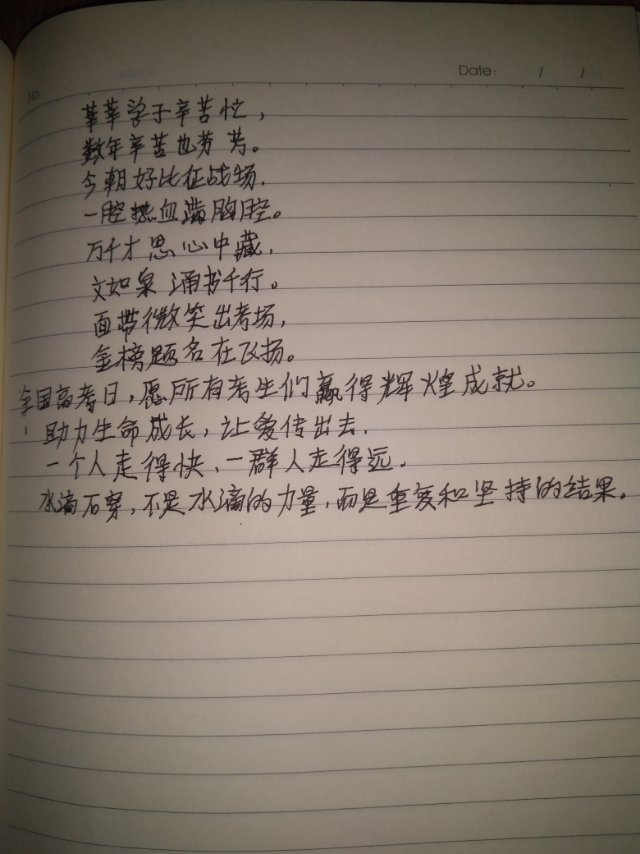 No.
Date: / /
莘莘学子辛苦忙,
数年辛苦也芳芳。
今朝好比征战场,
一腔热血满胸腔。
万千才思心中藏,
文如泉涌书千行。
面带微笑出考场,
金榜题名在飞扬。
全国高考日,愿所有考生们赢得辉煌成就。
助力生命成长,让爱传出去.
一个人走得快,一群人走得远.
水滴石穿,不是水滴的力量,而是重复和坚持的结果。